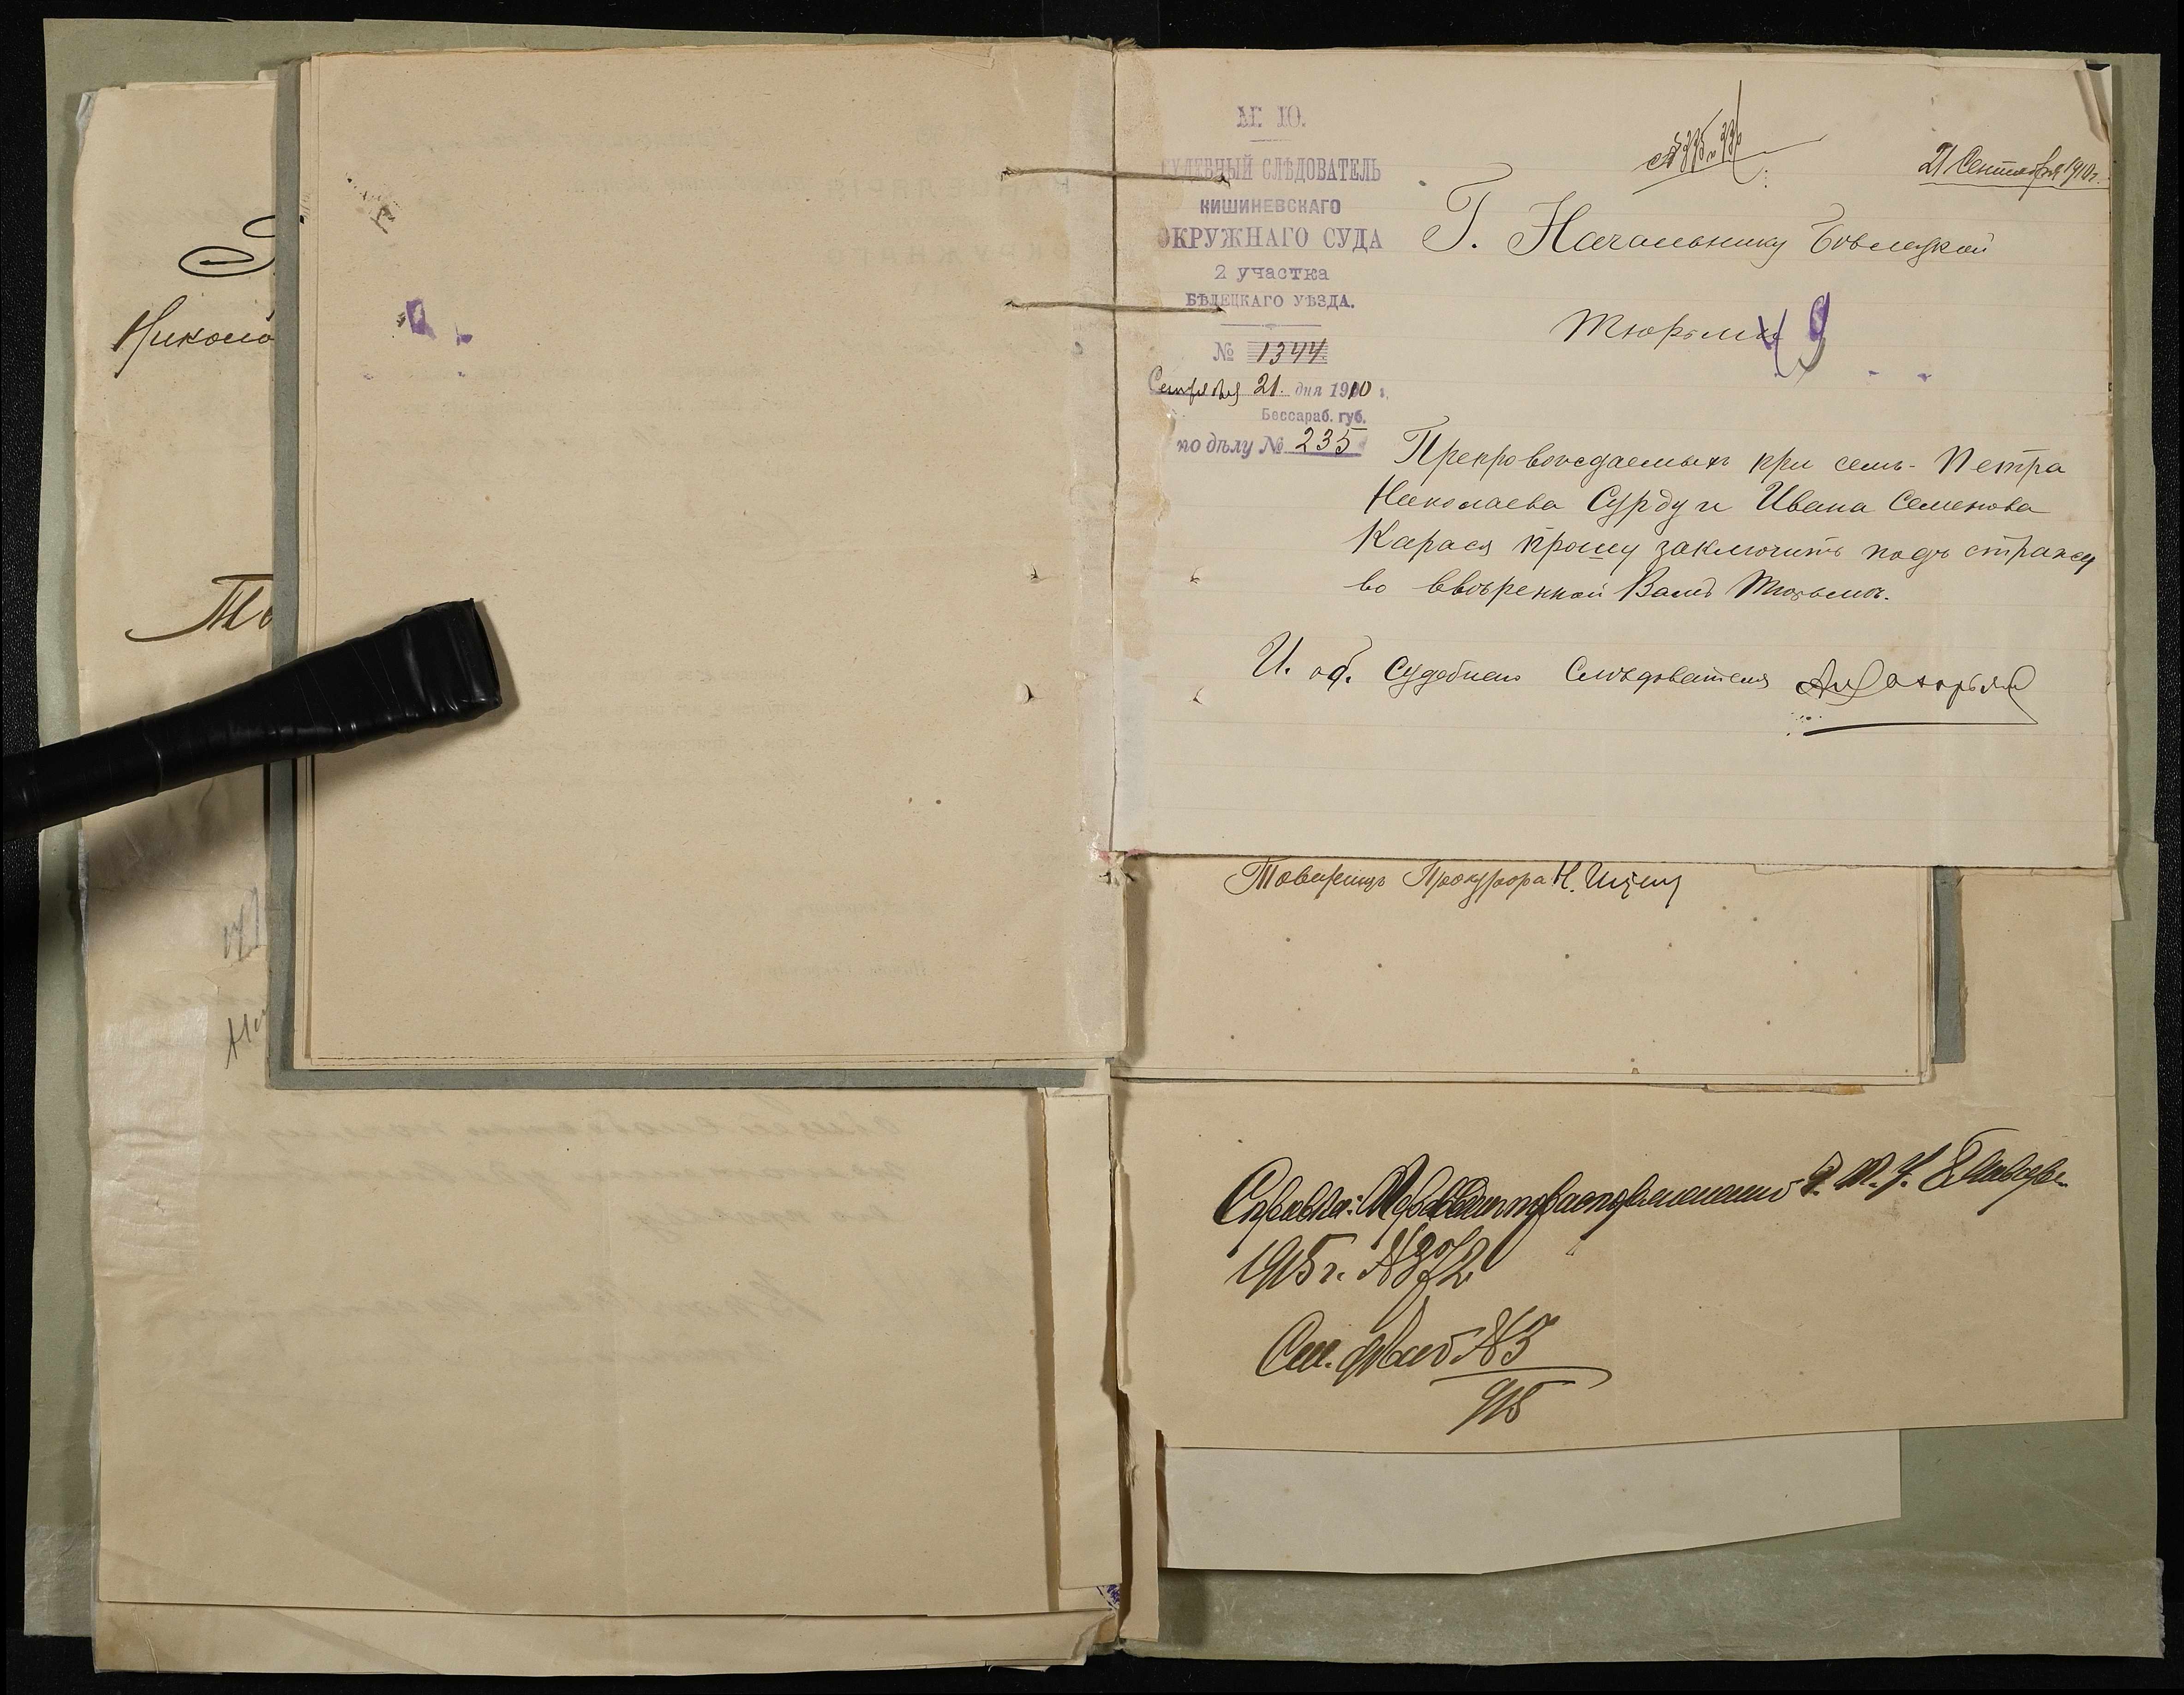 М. Ю.
СУДЕБНЫЙ СЛѢДОВАТЕЛЬ
КИШИНЕВСКАГО
ОКРУЖНАГО СУДА
2 участка
БѢЛЕЦКАГО УѢЗДА.
№ 1344
Сентября 21. дня 1910 г.
Бессараб. губ.
по дѣлу № 235
21 Сентября 1910 г.
Г. Начальнику Бѣлецкой
Тюрьмы
9
Препровождаемыхъ при семъ Петра
Николаева Сурду и Ивана Семенова
Карася прошу заключить подъ стражу
во ввѣренной Вамъ Тюрьмѣ.
И. об. Судебнаго Слѣдователя
Товарищъ Прокурора Н.
Николо
Справка:
1915 г. №
См. дѣло № 5
915